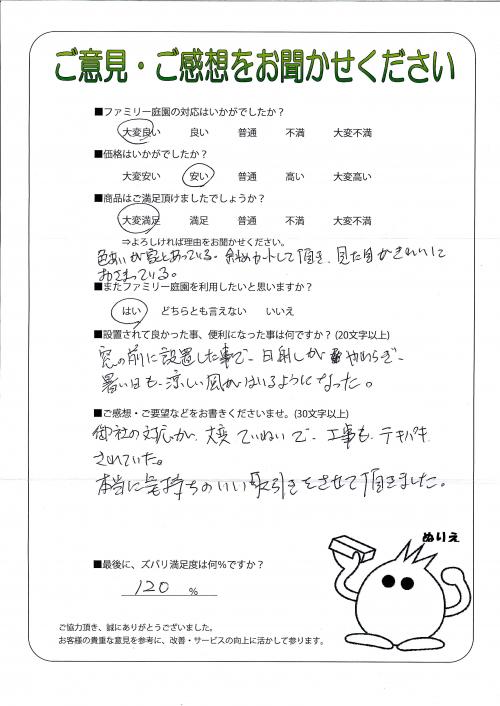 ご意見・ご感想をお聞かせください
■ファミリー庭園の対応はいかがでしたか？
大変良い 良い 普通 不満 大変不満
■価格はいかがでしたか？
大変安い 安い 普通 高い 大変高い
■商品はご満足頂けましたでしょうか？
大変満足 満足 普通 不満 大変不満
⇒よろしければ理由をお聞かせください。
色あいが家とあっている。斜めカートして頂き、見た目がきれいに
おさまっている。
■またファミリー庭園を利用したいと思いますか？
はい どちらとも言えない いいえ
■設置されて良かった事、便利になった事は何ですか？(20文字以上)
窓の前に設置した事で、日射しがやわらぎ、
暑い日も、涼しい風がはいるようになった。
■ご感想・ご要望などをお書きくださいませ。(30文字以上)
御社の対応が、大変ていねいで、工事も、テキパキ
されていた。
本当に気持ちのいい取引きをさせて頂きました。
ぬりえ
■最後に、ズバリ満足度は何％ですか？
120 ％
ご協力頂き、誠にありがとうございました。
お客様の貴重な意見を参考に、改善・サービスの向上に活かして参ります。